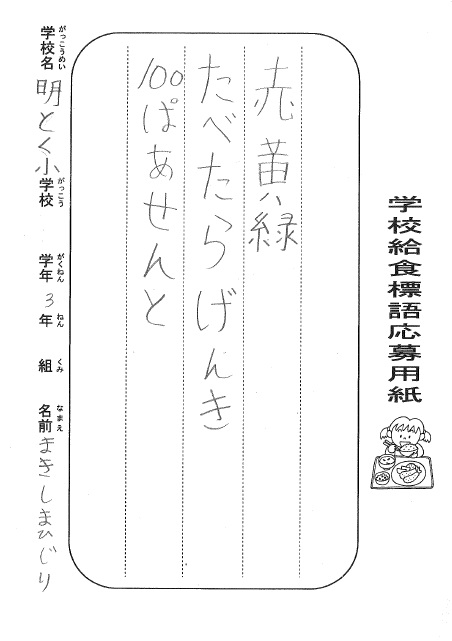 学校給食標語応募用紙
赤黄緑
たべたらげんき
100ぱあせんと
学校名 明とく小学校 学年 3年 組 名前 まきしまひじり
がっこうめい がっこう がくねん ねん くみ なまえ